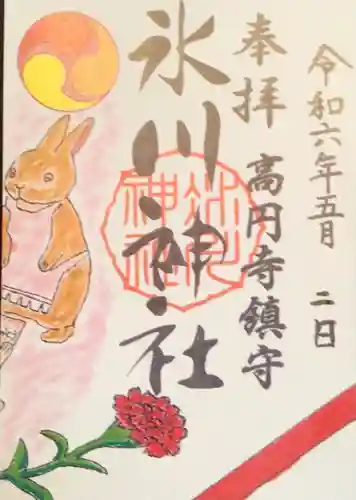 令和六年五月二日
奉拝
高円寺鎮守
氷川神社